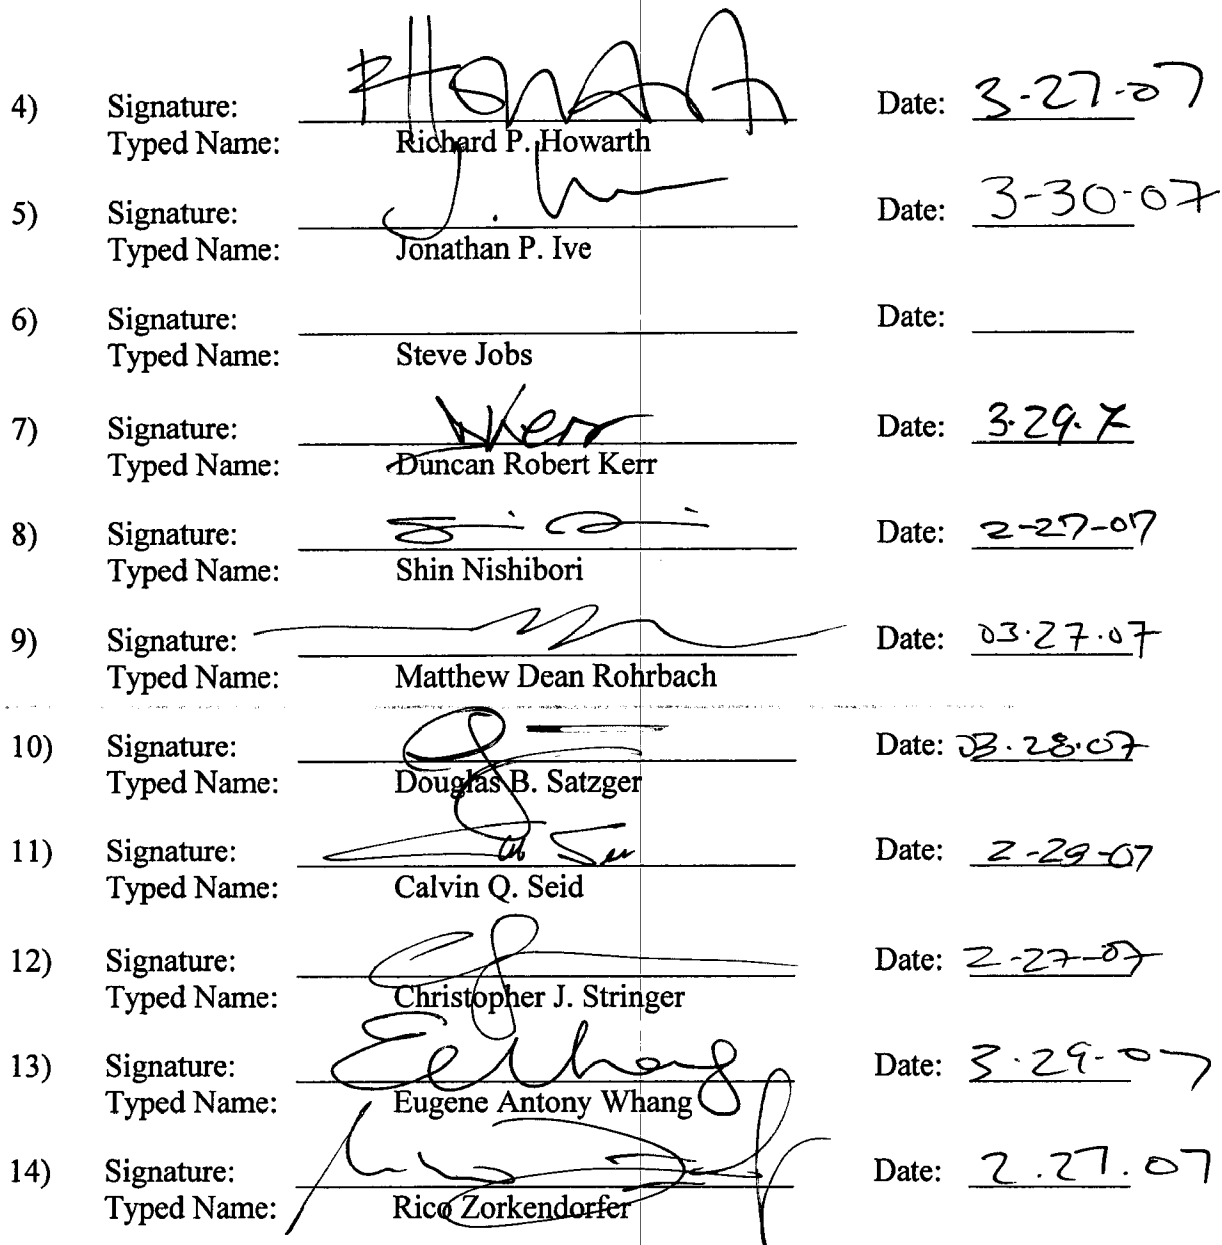 4) Signature: PHowarth Date: 3-27-07
Typed Name: Richard P. Howarth
5) Signature: J. Ive Date: 3-30-07
Typed Name: Jonathan P. Ive
6) Signature: Date:
Typed Name: Steve Jobs
7) Signature: DKerr Date: 3.29.7
Typed Name: Duncan Robert Kerr
8) Signature: Date: 2-27-07
Typed Name: Shin Nishibori
9) Signature: Date: 03.27.07
Typed Name: Matthew Dean Rohrbach
10) Signature: Date: 03.28.07
Typed Name: Douglas B. Satzger
11) Signature: Date: 2-29-07
Typed Name: Calvin Q. Seid
12) Signature: Date: 2-27-07
Typed Name: Christopher J. Stringer
13) Signature: EWhang Date: 3.29-07
Typed Name: Eugene Antony Whang
14) Signature: Date: 2.27.07
Typed Name: Rico Zorkendorfer